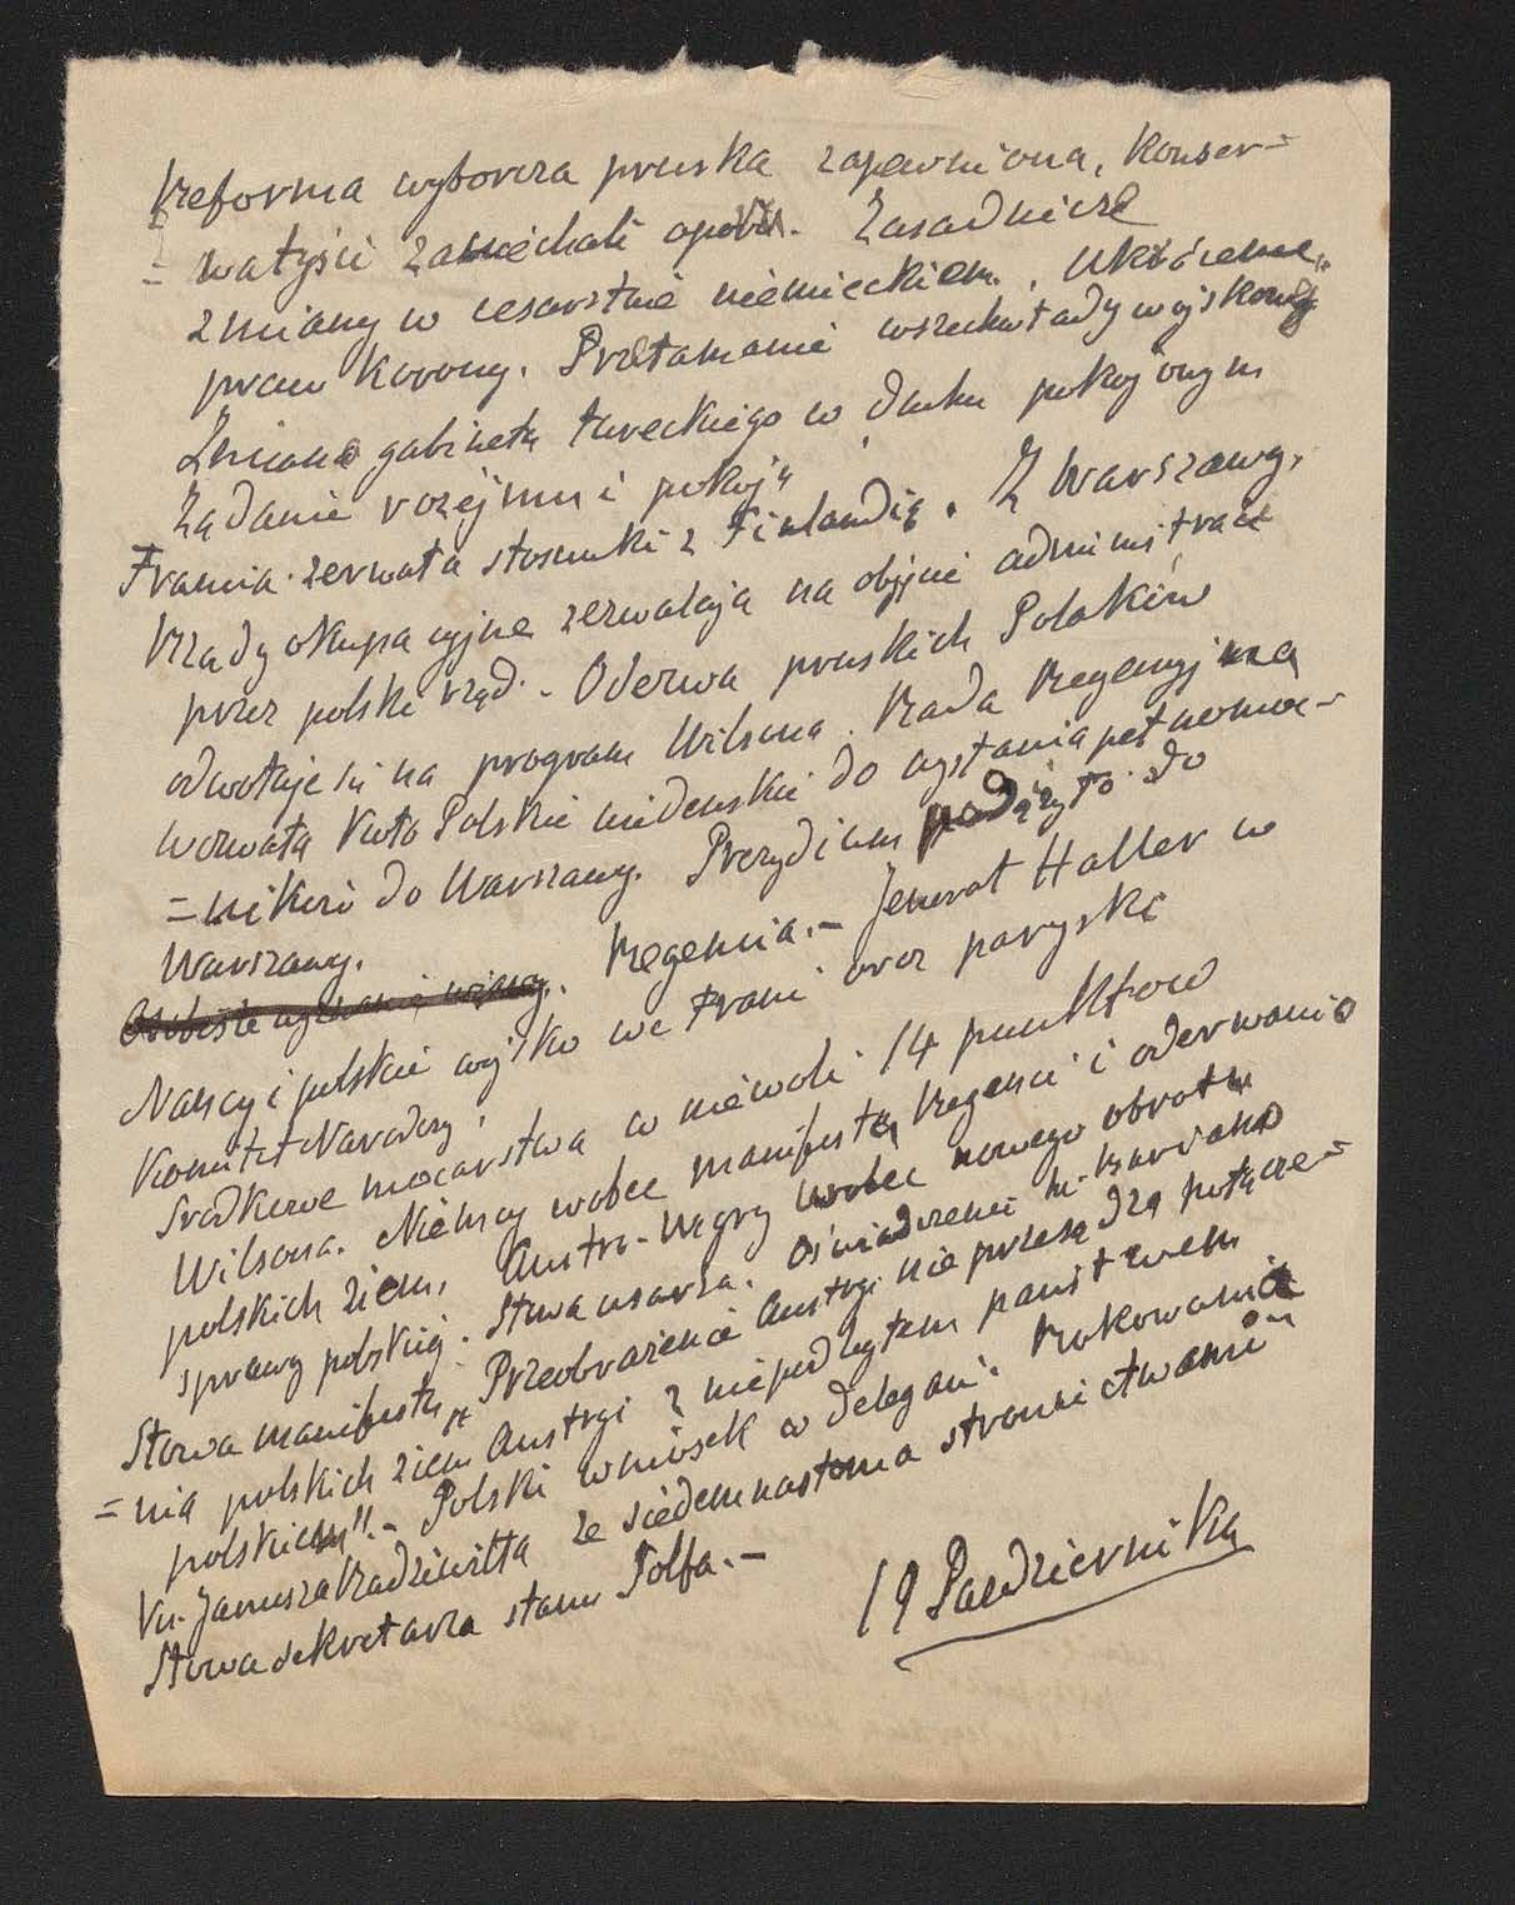 Reforma wyborcza pruska zapewniona, Konser=
= watyści zaniechali oporu. Zasadnicze
zmiany w cesarstwie niemieckiem. Ukrócenie
praw Korony. Przełamanie wszechwładzy wojskowej
Zmiana gabinetu tureckiego w duchu pokojowym
Żądanie rozejmu i pokoju
Francia zerwała stosunki z Finlandią. Z Warszawy.
Rządy okupacyjne zezwalają na objęcie administracii
przez polski rząd. - Odezwa pruskich Polaków
odwołuje się na program Wilsona. Rada Regencyjna
wezwała Koło Polskie wiedenskie do wysłania pełnomoc-
= ników do Warszawy. Prezydium podążyło do
Warszawy.
Regencia. - Jenerał Haller w
Nancy i polskie wojsko we Franci oraz paryski
Komitet Narodowy.
Srodkowe mocarstwa w niewoli 14 punktow
Wilsona. Niemcy wobec manifestu Regenci i oderwania
polskich ziem, Austro-Węgry wobec nowego obrotu
sprawy polskiej. Słowa cesarza. Oświadczenie m. Buriana
Słowa manifestu „Przeobrażenie Austryi nie przesądza połącze=
= nia polskich ziem Austryi z niepodległem państwem
polskiem". - Polski wniosek w delegaci. Rokowania
Ks. Janusza Radziwiłła ze siedemnastoma stronnictwami
Słowa sekretarza stanu Solfa. -
19 Pazdziernika